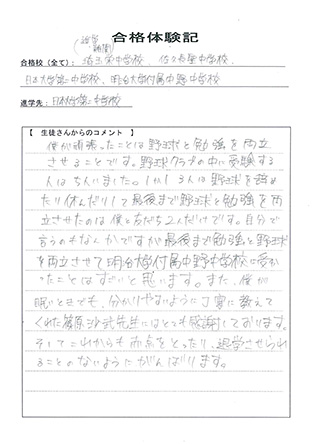 合格体験記
(進学補欠)
合格校(全て): 埼玉栄中学校、佐久長聖中学校、
日本大学第二中学校、明治大学付属中野中学校
進学先: 日本大学第二中学校
【 生徒さんからのコメント 】
僕が頑張ったことは野球と勉強を両立
させることです。野球クラブの中に受験する
人は5人いました。しかし3人は野球を辞め
たり休んだりして最後まで野球と勉強を両
立させたのは僕と友だち2人だけです。自分で
言うのもなんかですが最後まで勉強と野球
を両立させて明治大学付属中野中学校に受か
ったことはすごいと思います。また、僕が
眠いときでも、分かりやすいように丁寧に教えて
くれた篠原沙武先生にはとても感謝しております。
そしてこれからも赤点をとったり、退学させられ
ることのないようにがんばります。